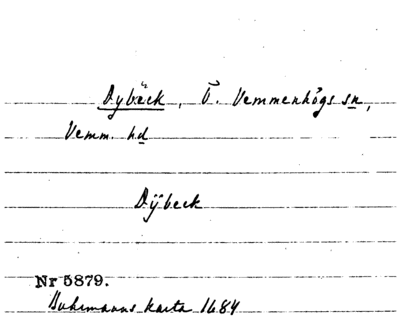 Dybeck, Ö. Vemmenhögs sn,
Vemm. hd
Dÿbeck
Nr 5879.
Buhrmanns karta 1684